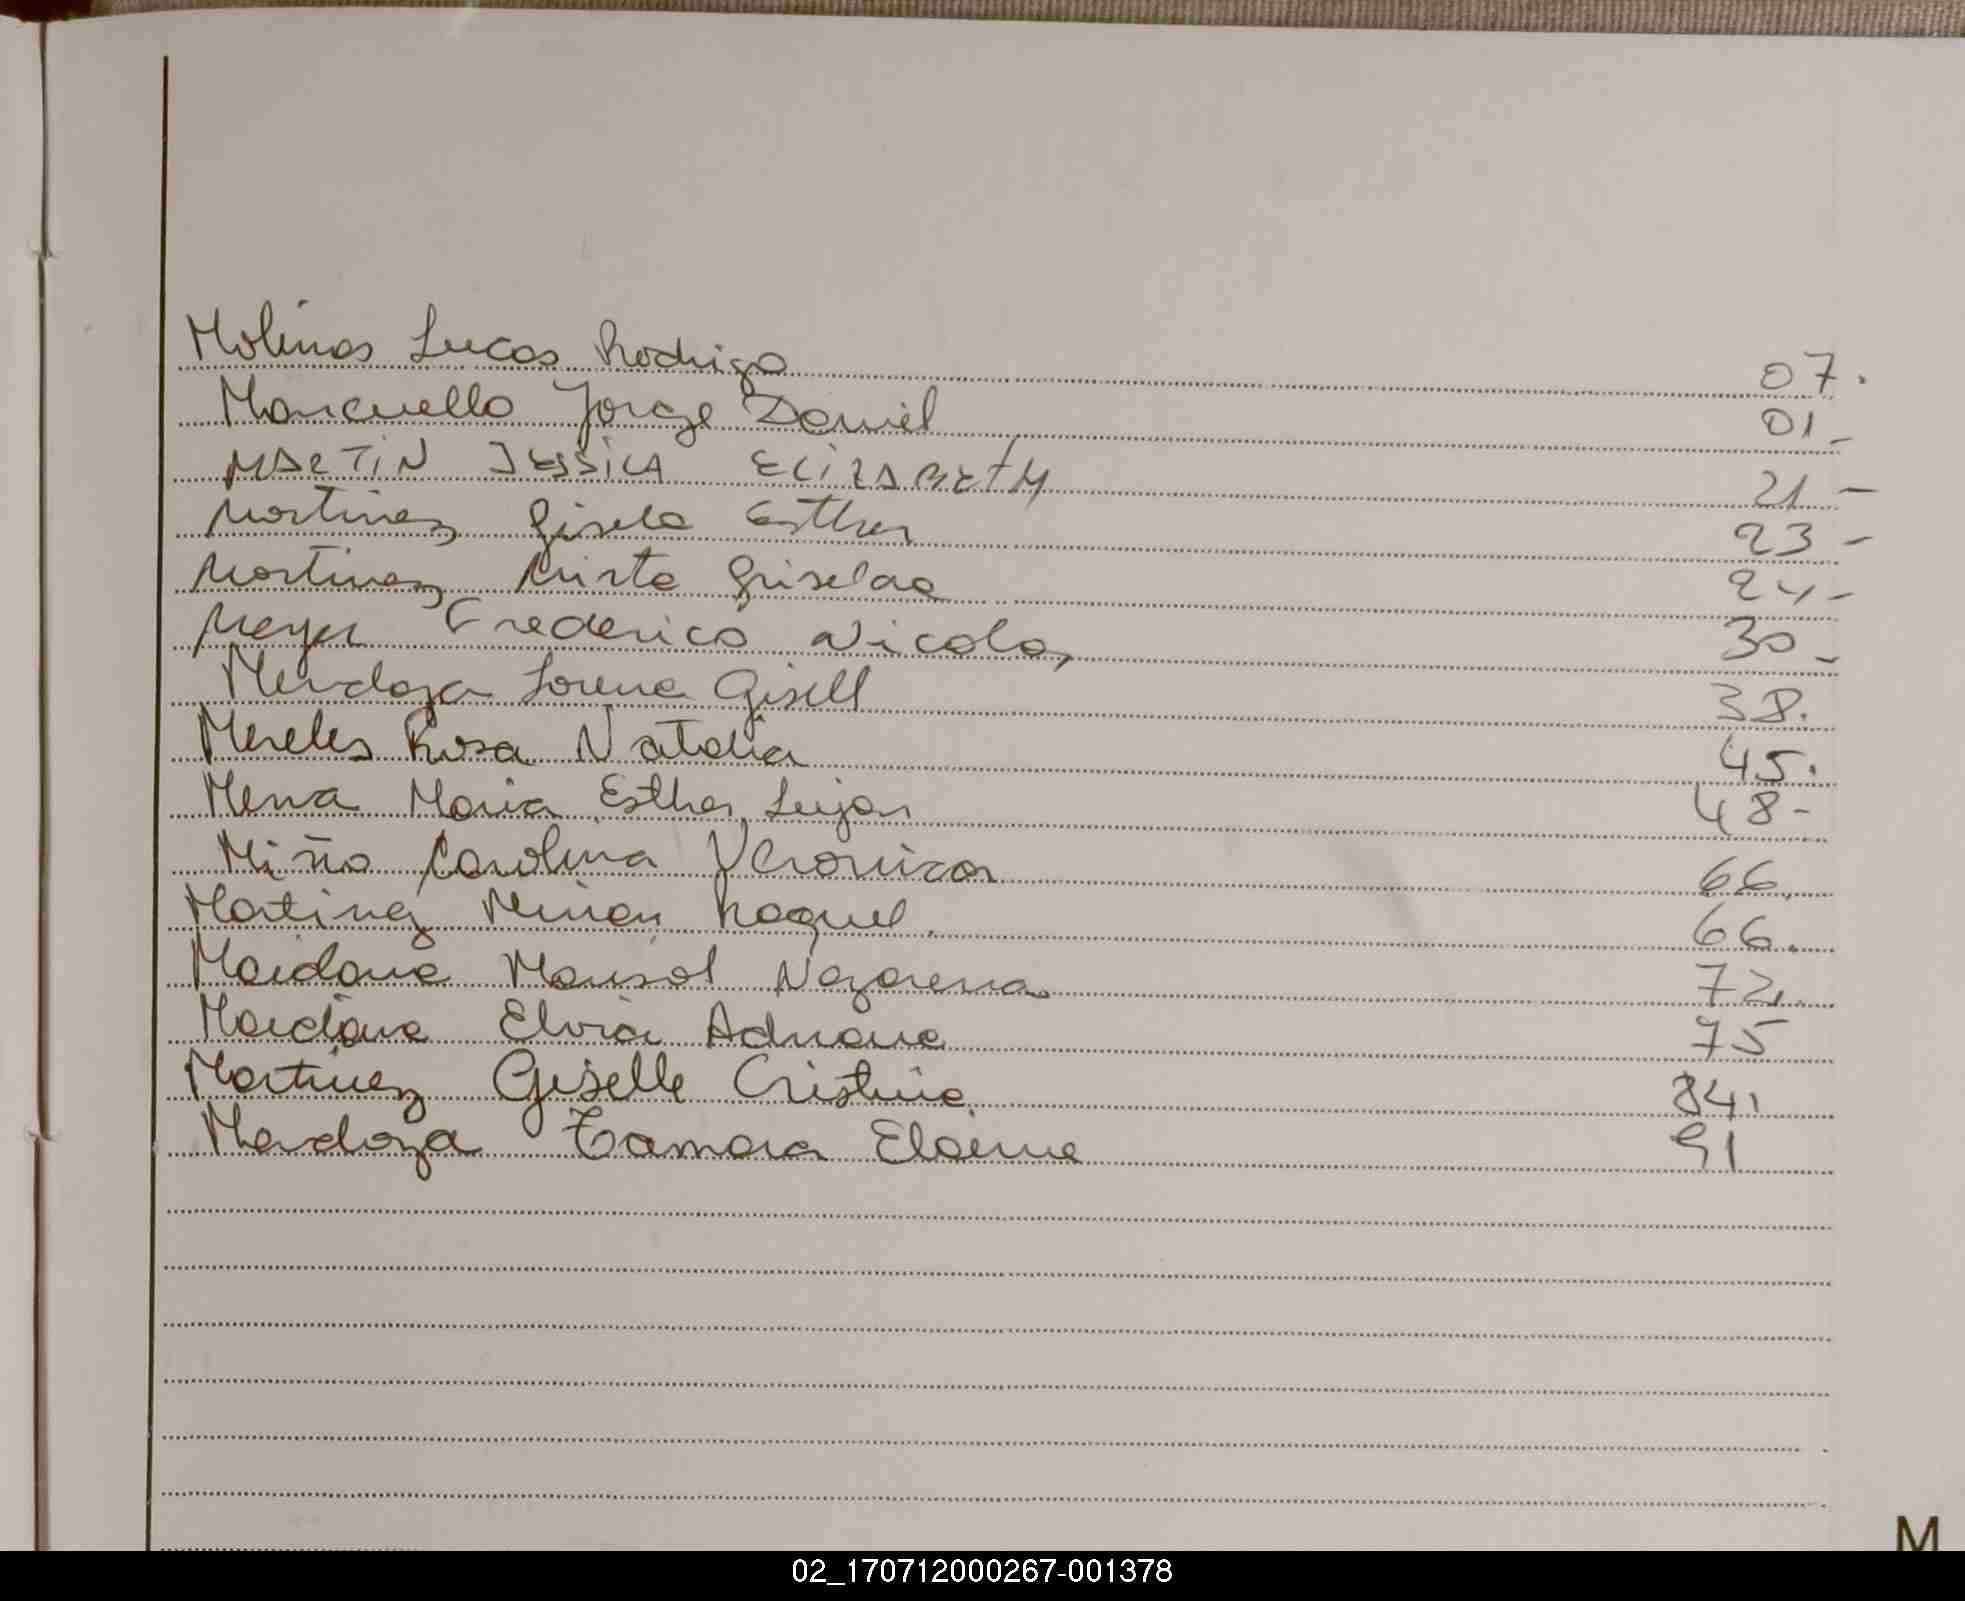 Molinas Lucas Rodrigo 07.
Marcuello Jorge Daniel 01-
MARTIN JESSICA ELIZABETH 21-
Martinez Gisela Esther 23-
Martinez Mirta Griselda 24-
Meyer Frederico Nicolas 30-
Mendoza Lorena Gisell 38.
Mereles Rosa Natalia 45.
Mena Maria Esther Lujan 48-
Miño Carolina Veronica 66
Martinez Miriam Raquel 66.
Maidana Marisol Nazarena 72.
Maidana Elvira Adriana 75
Martinez Giselle Cristina 84.
Mendoza Tamara Elaine 91
M
02_170712000267-001378